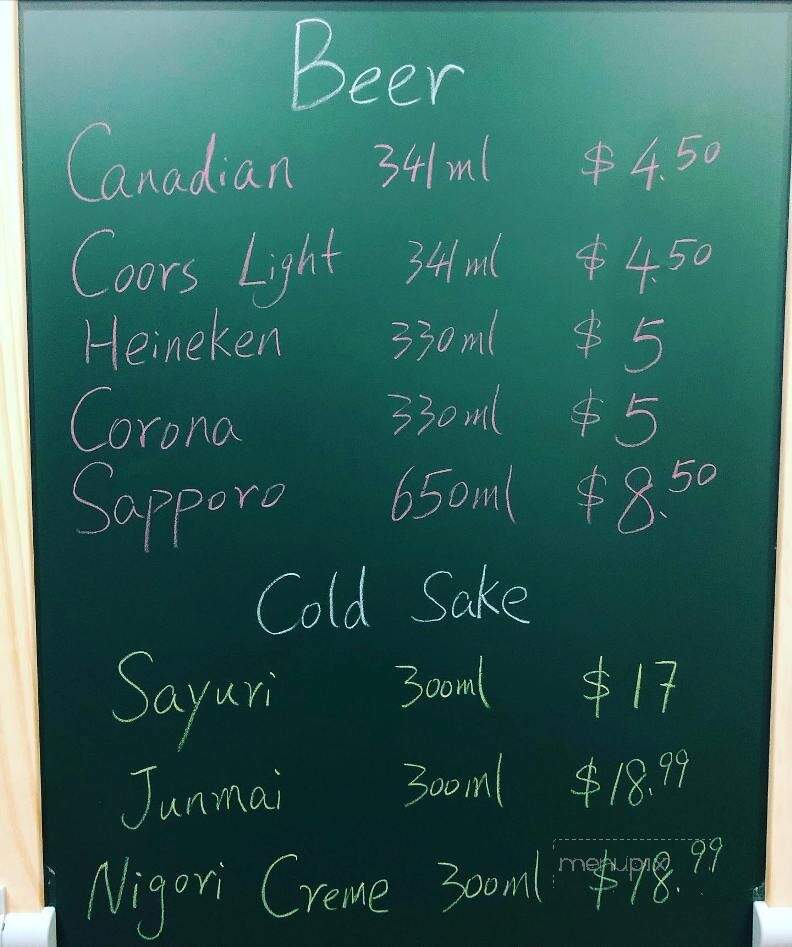 Beer
Canadian 341ml $4.50
Coors Light 341ml $4.50
Heineken 330ml $5
Corona 330ml $5
Sapporo 650ml $8.50
Cold Sake
Sayuri 300ml $17
Junmai 300ml $18.99
Nigori Creme 300ml $18.99
menupix